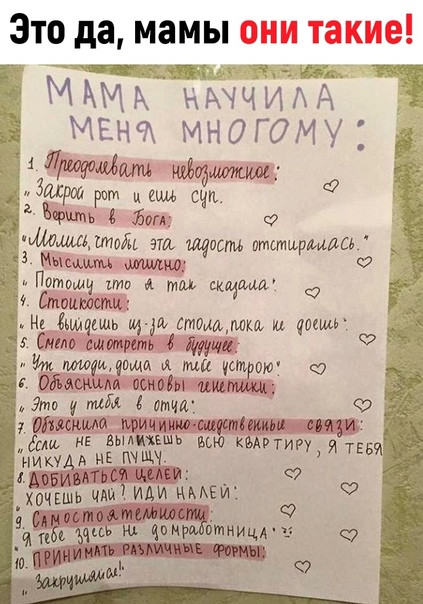 Это да, мамы они такие!
МАМА НАУЧИЛА
МЕНЯ МНОГОМУ:
1. Преодолевать невозможное:
„Закрой рот и ешь суп.
2. Верить в Бога:
„Молись, чтобы эта гадость отстиралась."
3. Мыслить логично:
„Потому что я так сказала"
4. Стойкости:
„Не выйдешь из-за стола, пока не доешь"
5. Смело смотреть в будущее:
„Уж погоди, дома я тебе устрою"
6. Объяснила основы генетики:
„Это у тебя в отца"
7. Объяснила причинно-следственные связи:
„Если не вылижешь всю квартиру, я тебя
никуда не пущу.
8. Добиваться целей:
„Хочешь чай? Иди налей"
9. Самостоятельности:
„Я тебе здесь не домработница"
10. Принимать различные формы:
„Закругляйся!"